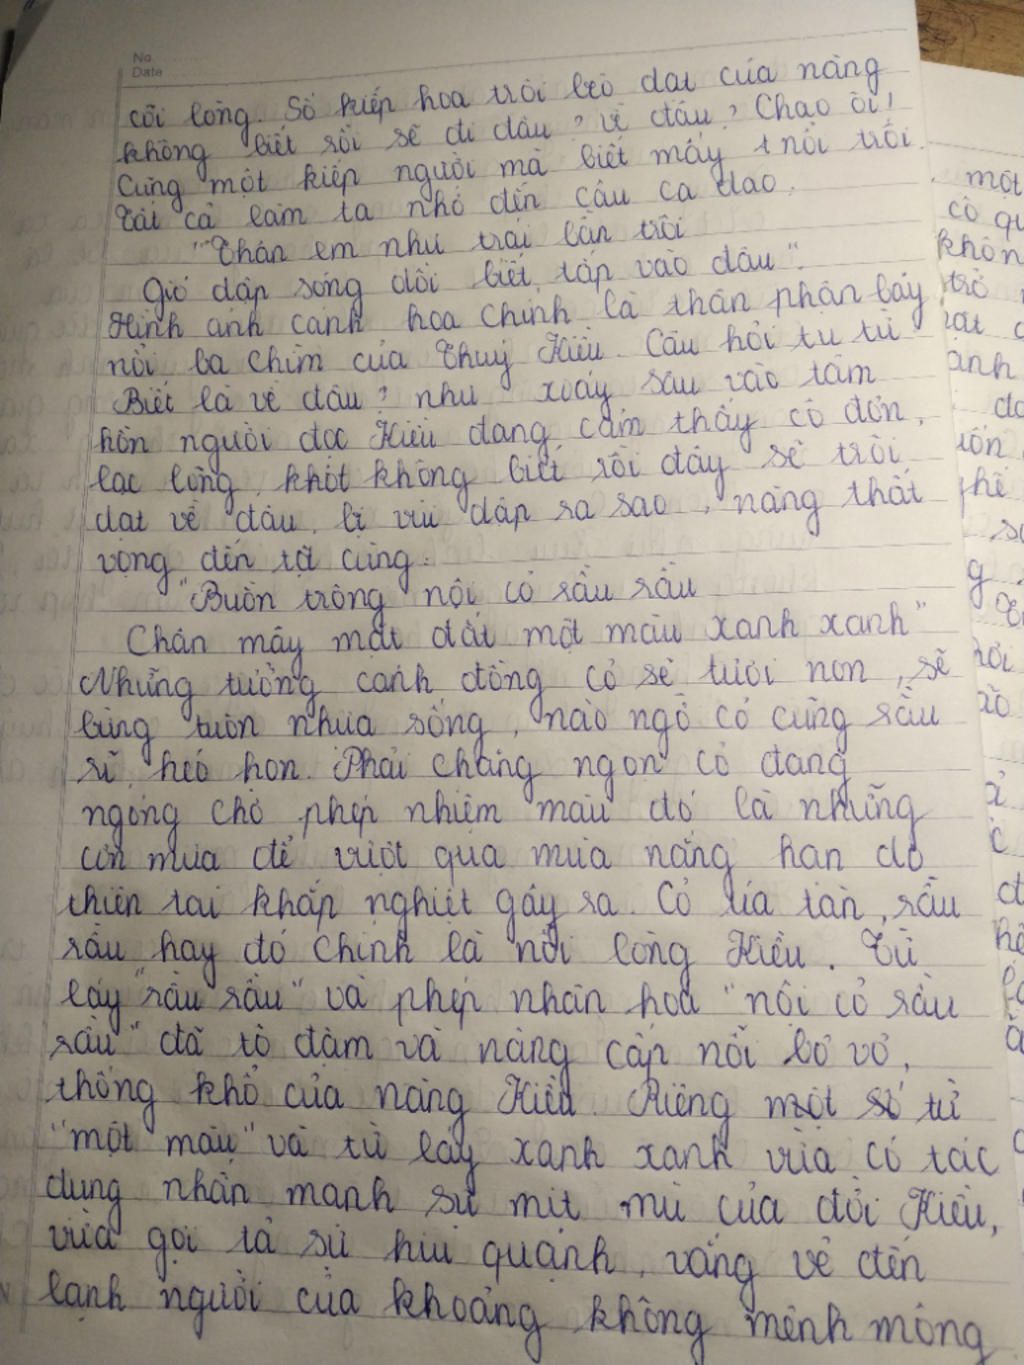 No.
Date
cõi lòng. Số kiếp hoa trôi bèo dạt của nàng
không biết rồi sẽ đi đâu? về đâu? Chao ôi!
Cùng một kiếp người mà biết mấy nổi trôi.
Tất cả làm ta nhớ đến câu ca dao.
"Thân em như trái bần trôi
Gió dập sóng dồi biết tấp vào đâu".
Hình ảnh cánh hoa chính là thân phận bảy
nổi ba chìm của Thuý Kiều. Câu hỏi tu từ
Biết là về đâu? như xoáy sâu vào tâm
hồn người đọc Kiều đang cảm thấy cô đơn,
lạc lõng, khốt không biết rồi đây sẽ trôi
dạt về đâu, bị vùi dập ra sao, nàng thất
vọng đến tột cùng.
"Buồn trông nội cỏ rầu rầu
Chân mây mặt đất một màu xanh xanh"
Những tưởng cánh đồng cỏ sẽ tươi non, sẽ
bừng tuôn nhựa sống, nào ngờ cỏ cũng rầu
rĩ, héo hon. Phải chăng ngọn cỏ đang
ngóng chờ phép nhiệm màu đó là những
cơn mưa để vượt qua mùa nắng hạn do
thiên tai khắp nghiệt gây ra. Cỏ úa tàn, rầu
rầu hay đó chính là nỗi lòng Kiều. Từ
láy "rầu rầu" và phép nhân hoá "nội cỏ rầu
rầu" đã tô đậm và nâng cấp nỗi bơ vơ,
thống khổ của nàng Kiều. Riêng một số từ
"một màu" và từ láy xanh xanh vừa có tác
dụng nhấn mạnh sự mịt mù của đời Kiều,
vừa gợi tả sự hiu quạnh, vắng vẻ đến
lạnh người của khoảng không mênh mông
một
có
không
trở